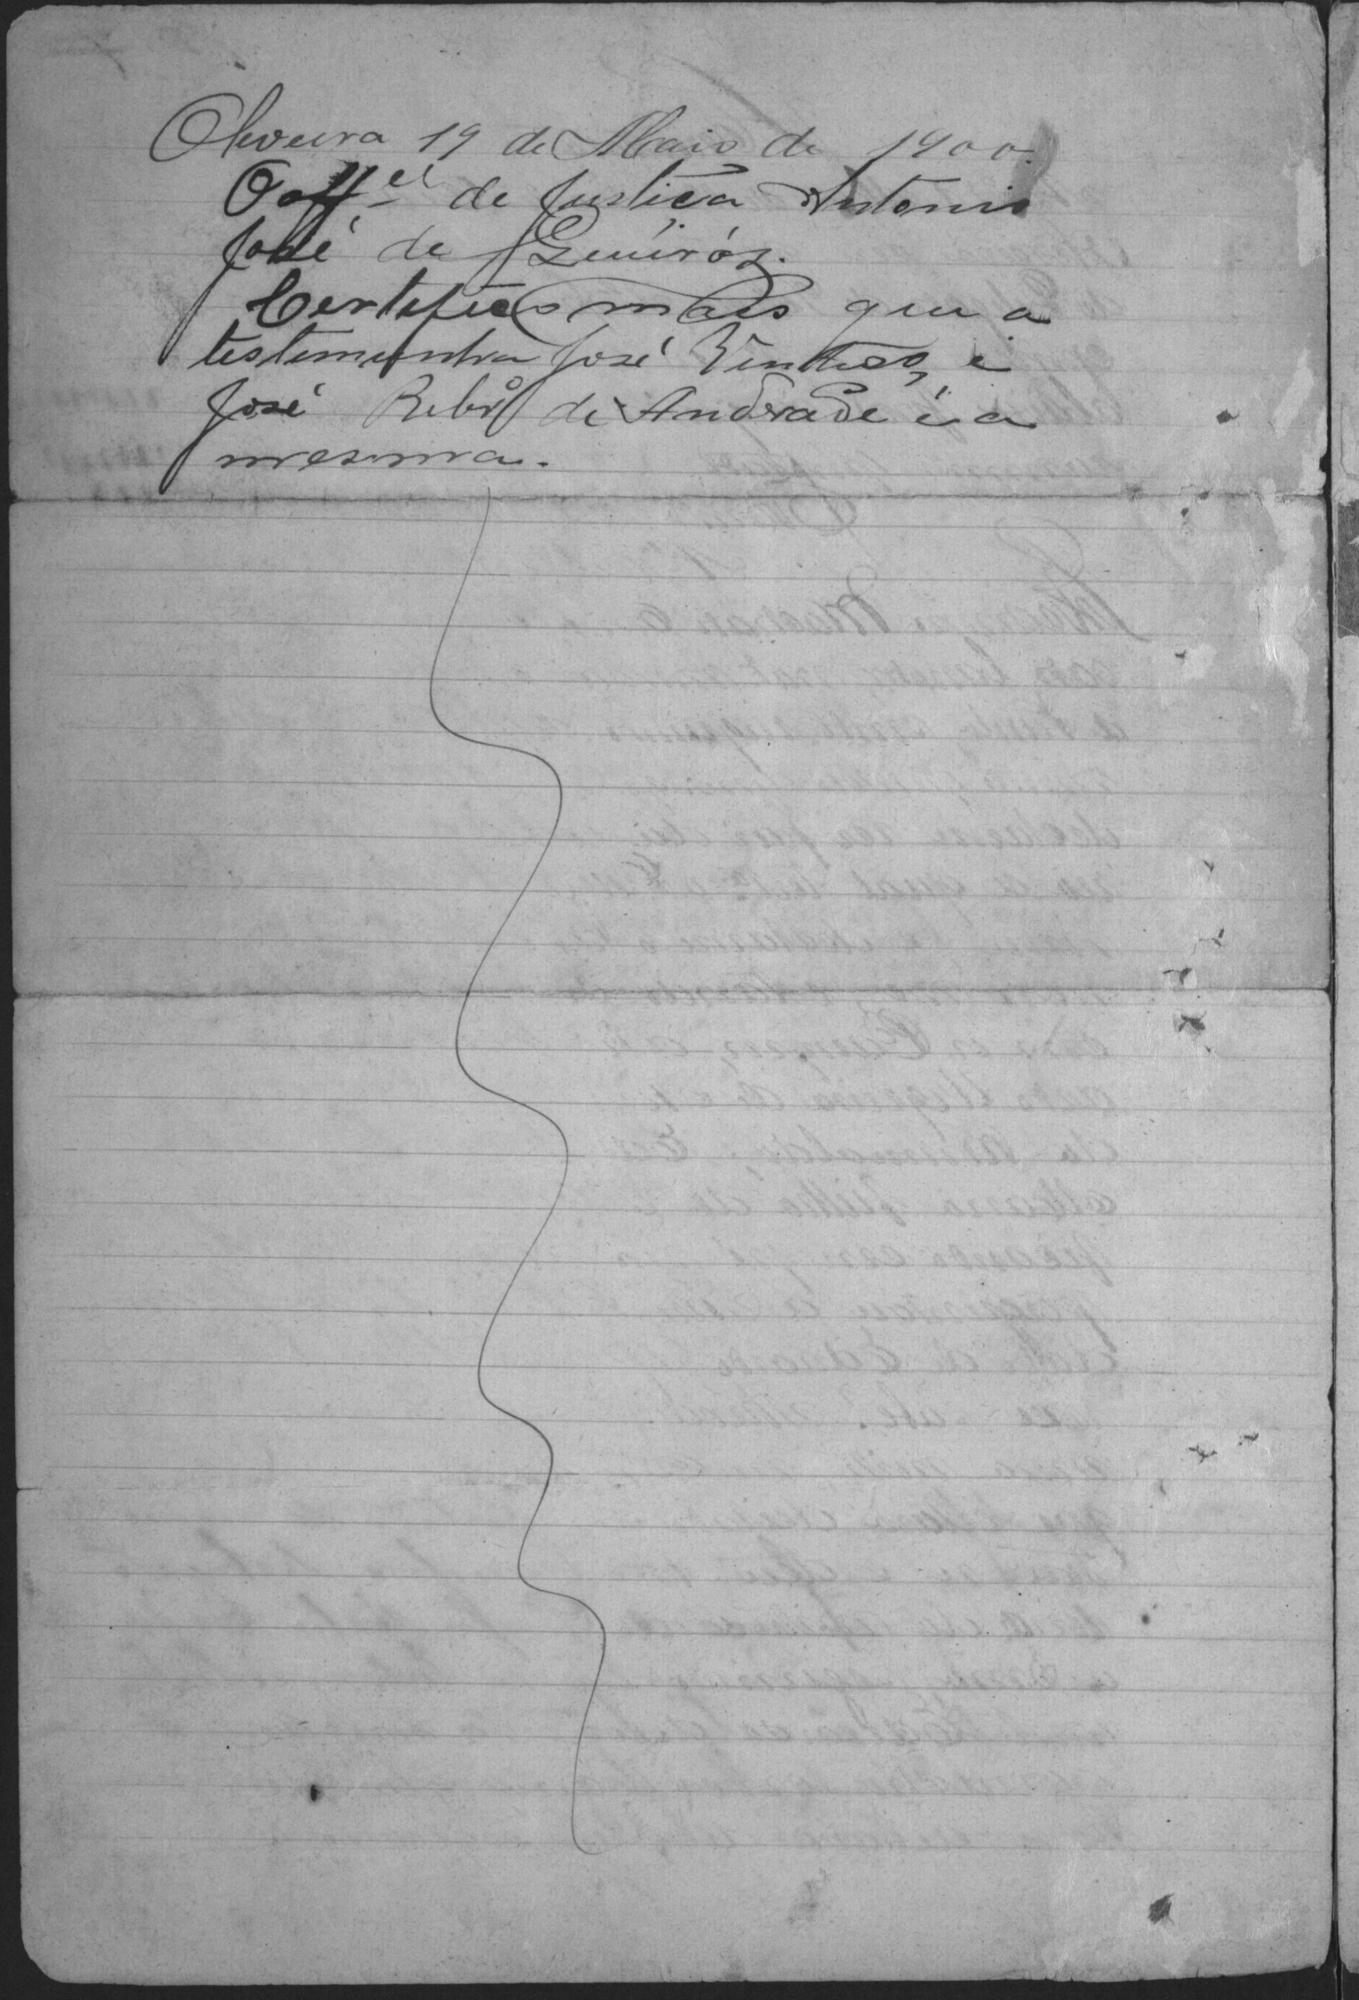 Oliveira 19 de Maio de 1900.
O off.el de Justiça Antonio
José de Queiróz.
Certifico mais que a
testemunha José e
José Rib.ro de Andrade é a
mesma.